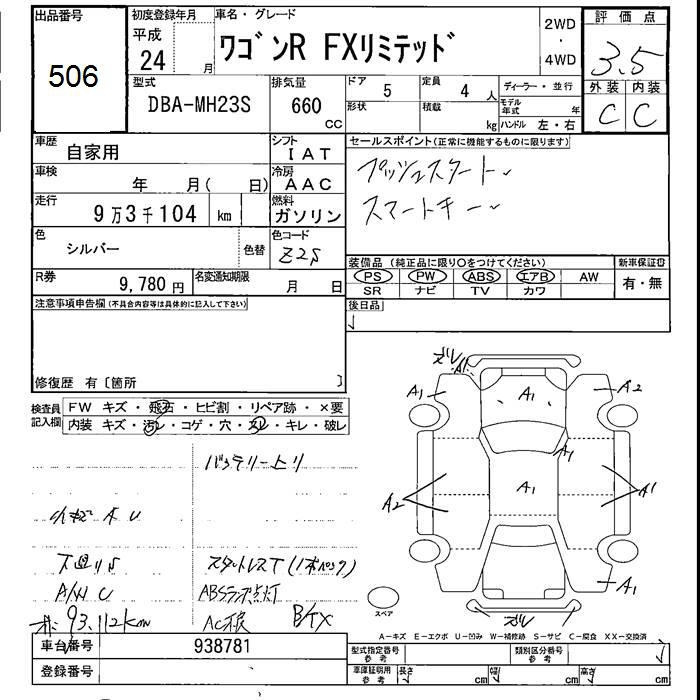 出品番号
506
初度登録年月
平成
24 月
車名・グレード
ワゴンR FXリミテッド
2WD
・
4WD
評価点
3.5
外装 内装
C C
型式
DBA-MH23S
排気量
660
CC
ドア
5
定員
4 人
形状
積載
kg
ディーラー・並行
モデル年式 年
ハンドル 左・右
車歴
自家用
シフト
IAT
車検
年 月( 日)
冷房
AAC
走行
9万3千104 km
燃料
ガソリン
色
シルバー
色替
色コード
Z2S
R券
9,780 円
名変通知期限
月 日
セールスポイント(正常に機能するものに限ります)
プッシュスタート
スマートキー
装備品(純正品に限り○をつけてください)
PS PW ABS エアB AW
SR ナビ TV カワ
新車保証書
有・無
後日品
注意事項申告欄(不具合内容等は具体的に記入して下さい)
修復歴 有〔箇所 〕
検査員記入欄
FW キズ・飛石・ヒビ割・リペア跡・×要
内装 キズ・汚レ・コゲ・穴・スレ・キレ・破レ
バッテリー上り
小キズ A U
下廻りS
A/W C
93,112km
スタットレスT(1本パンク)
ABSランプ点灯
AC不良
B/TX
ズレ A1
A1
A1
A2
A1
A2
A1
A1
A1
ズレ
スペア
A-キズ E-エクボ U-凹み W-補修跡 S-サビ C-腐食 XX-交換済
車台番号
938781
登録番号
型式指定番号
参考
類別区分番号
参考
車庫証明用
参考
長さ cm
幅 cm
高さ cm